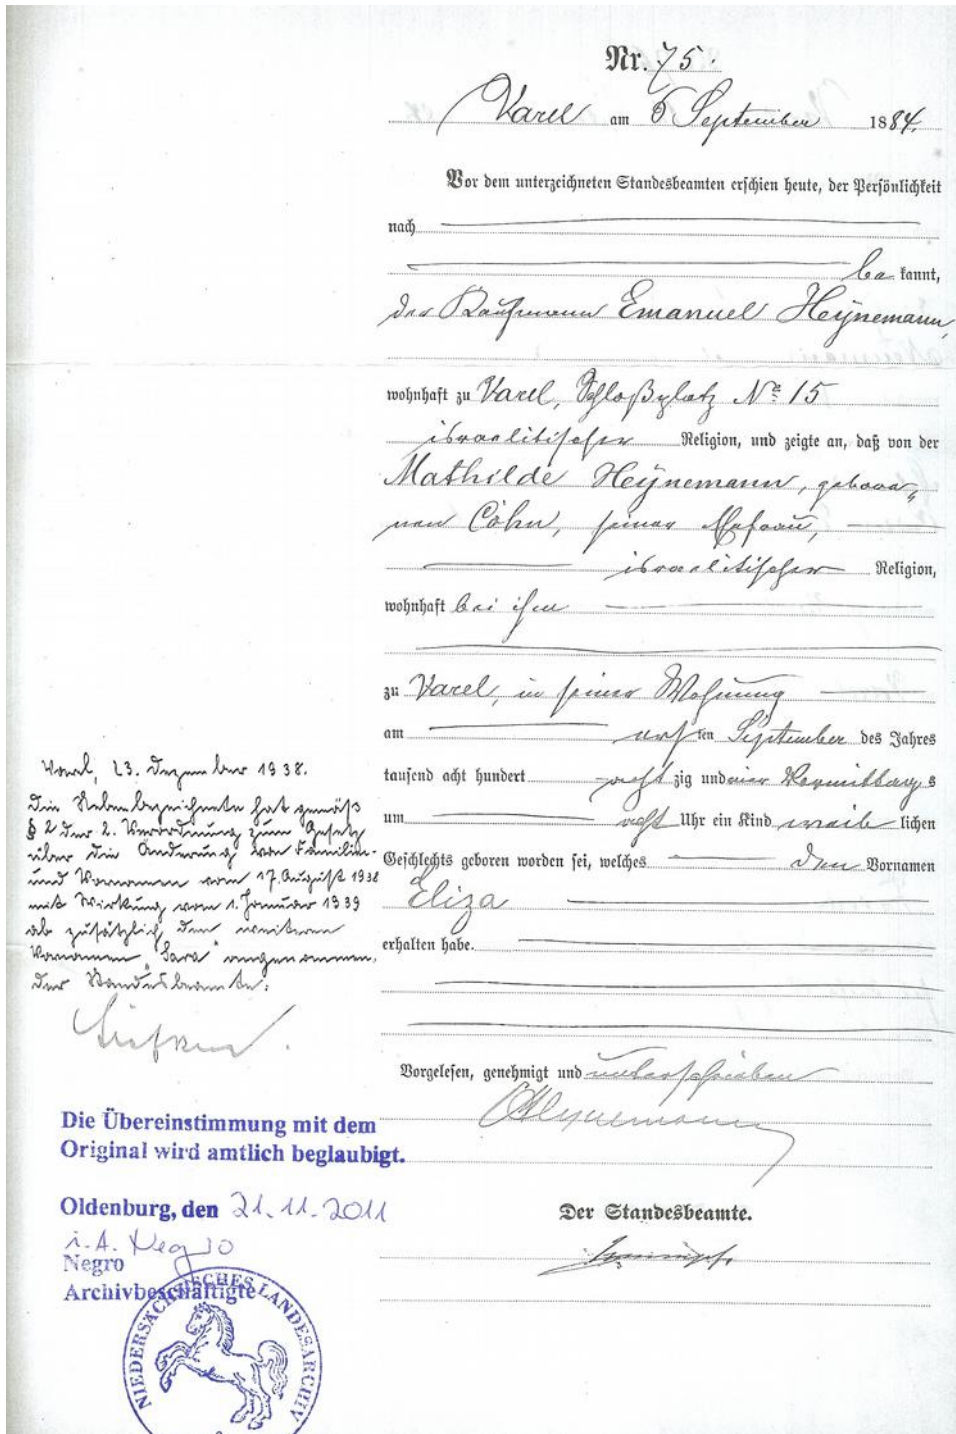 Nr. 75.
Varel am 6 September 1884.
Vor dem unterzeichneten Standesbeamten erschien heute, der Persönlichkeit
nach
be kannt,
der Kaufmann Emanuel Heÿnemann,
wohnhaft zu Varel, Schloßplatz No 15
israelitischer Religion, und zeigte an, daß von der
Mathilde Heÿnemann, gebore„
nen Cohn, seiner Ehefrau,
israelitischer Religion,
wohnhaft bei ihm
zu Varel, in seiner Wohnung
am ersten September des Jahres
tausend acht hundert acht zig und vier Vormittags
um acht Uhr ein Kind weib lichen
Geschlechts geboren worden sei, welches den Vornamen
Eliza
erhalten habe.
Vorgelesen, genehmigt und unterschrieben
EHeynemann
Der Standesbeamte.
Varel, 23. Dezember 1938.
Die Nebenbezeichnete hat gemäß
§ 2 der 2. Verordnung zum Gesetz
über die Änderung von Familien-
und Vornamen vom 17. August 1938
mit Wirkung vom 1. Januar 1939
ab zusätzlich den weiteren
Vornamen „Sara" angenommen.
Der Standesbeamte:
Die Übereinstimmung mit dem
Original wird amtlich beglaubigt.
Oldenburg, den 21.11.2011
i.A. Negro
Negro
Archivbeschäftigte
NIEDERSÄCHSISCHES LANDESARCHIV